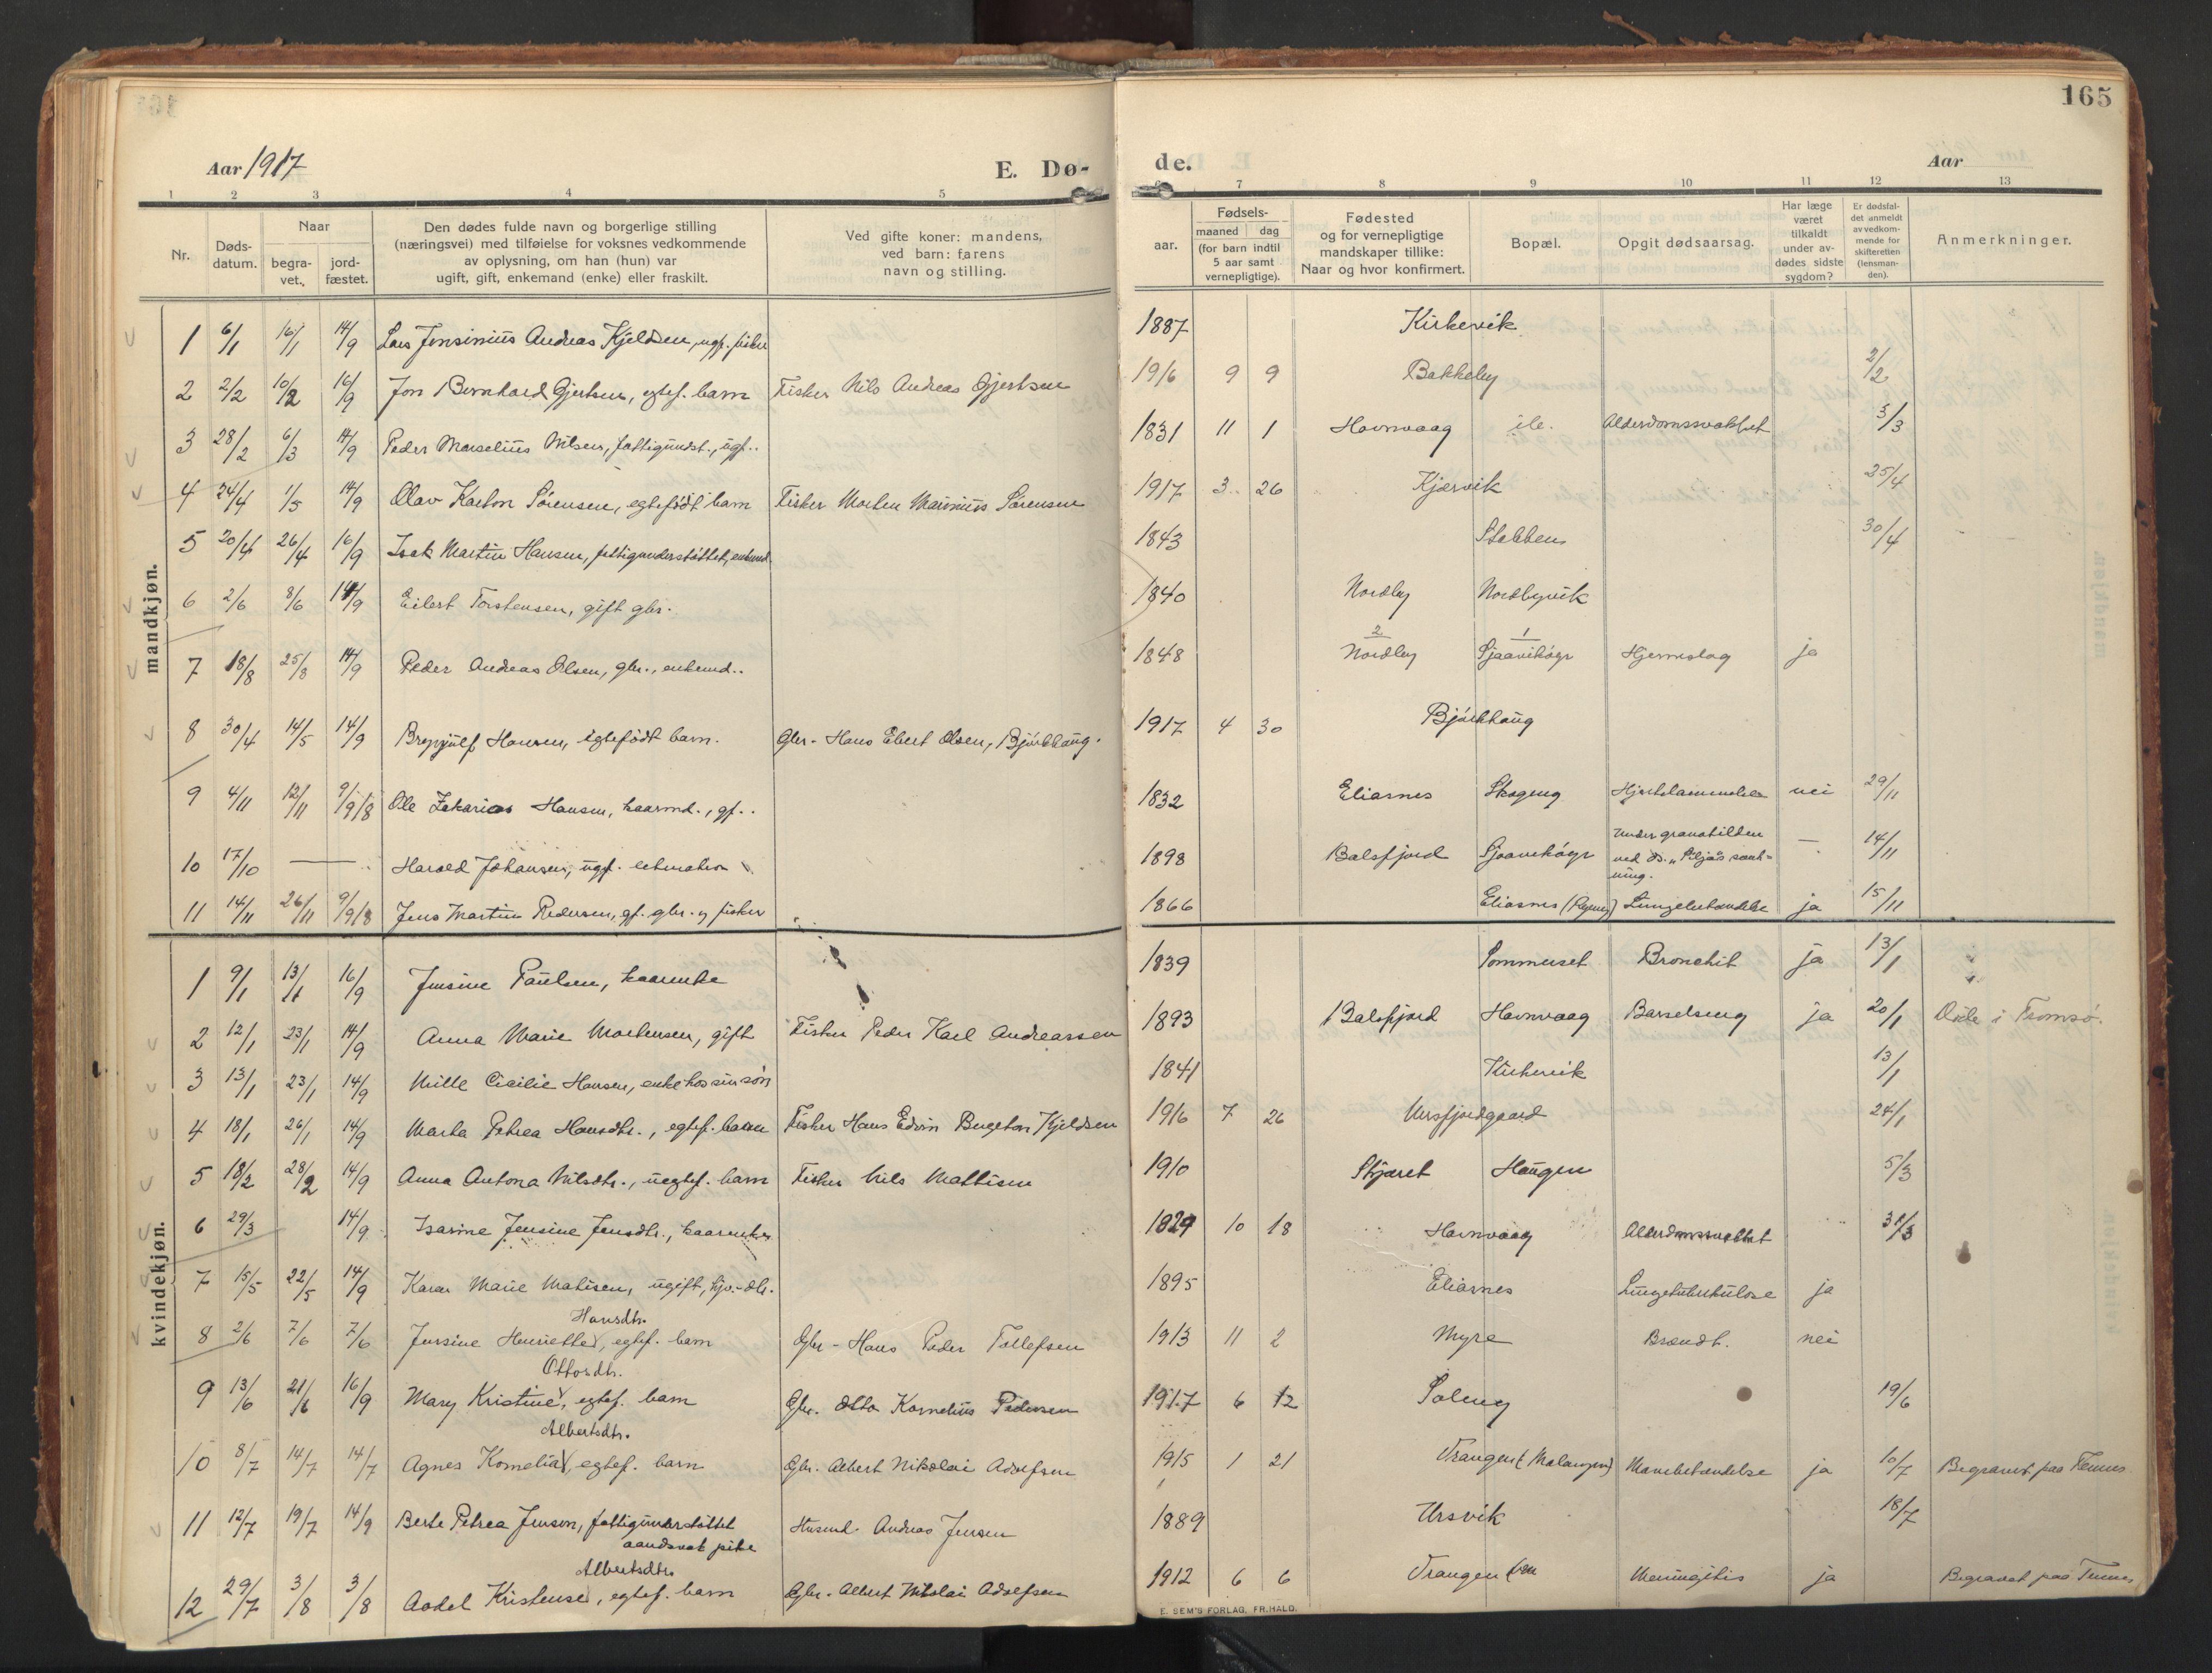 165
Aar 1917
E. Dø-
de.
Aar
1 2 3 4 5
7 8 9 10 11 12 13
Nr.
Døds-
datum.
Naar
begra-
vet.
jord-
fæstet.
Den dødes fulde navn og borgerlige stilling
(næringsvei) med tilføielse for voksnes vedkommende
av oplysning, om han (hun) var
ugift, gift, enkemand (enke) eller fraskilt.
Ved gifte koner: mandens,
ved barn: farens
navn og stilling.
aar.
Fødsels-
maaned dag
(for barn indtil
5 aar samt
vernepligtige).
Fødested
og for vernepligtige
mandskaper tillike:
Naar og hvor konfirmert.
Bopæl.
Opgit dødsaarsag.
Har læge
været
tilkaldt
under av-
dødes sidste
sygdom?
Er dødsfal-
det anmeldt
av vedkom-
mende for
skifteretten
(lensman-
den).
Anmerkninger.
mandkjøn.
1 6/1 16/1 14/9 Lars Jensinius Andreas Kjeldsen, ugf. fisker 1887 Kirkevik
2 2/2 10/2 16/9 Jon Bernhard Gjertsen, egtef. barn Fisker Nils Andreas Gjertsen 1916 9 9 Bakkeby 2/2
3 28/2 6/3 14/9 Peder Marselius Nilsen, fattigundst., ugf. 1831 11 1 Havnvaag ile. Alderdomssvakhet 3/3
4 24/4 1/5 14/9 Olav Karton Sørensen, egtefødt barn Fisker Morten Marinius Sørensen 1917 3 26 Kjærvik 25/4
5 20/4 26/4 16/9 Isak Martin Hansen, fattigunderstøttet, enkemd. 1843 Stabben 30/4
6 2/6 8/6 14/9 Eilert Torstensen, gift gbr. 1840 Nordby Nordbyvik
7 18/8 25/8 14/9 Peder Andreas Olsen, gbr., enkemd. 1848 2 Nordby 1 Sjaavikøyr Hjerneslag ja
8 30/4 14/5 14/9 Brynjulf Hansen, egtefødt barn. Gbr. Hans Ebert Olsen, Bjørkhaug. 1917 4 30 Bjørkhaug
9 4/11 12/11 9/9 18 Ole Zakarias Hansen, kaarmd., gf. 1832 Eliasnes Skogeng Hjertelammelse nei 29/11
10 17/10 — Harald Johansen, ugf. 1898 Balsfjord Sjaavikøyr Under granatilden
ved ds. "Silja's senk-
ning. — 14/11
11 14/11 26/11 9/9 18 Jens Martin Pedersen, gf. gbr. og fisker 1866 Eliasnes Lungebetændelse ja 15/11
kvindekjøn.
1 9/1 13/1 16/9 Jensine Paulsen, kaarenke 1839 Sommerset Bronchit ja 13/1
2 12/1 23/1 14/9 Anna Marie Mortensen, gift Fisker Peder Karl Andreassen 1893 Balsfjord Havnvaag Barselseng ja 20/1 Døde i Tromsø.
3 13/1 23/1 14/9 Mille Cicilie Hansen, enke hos sin søn 1841 Kirkevik 13/1
4 18/1 26/1 14/9 Marta Petrea Hansdtr., egtef. barn Fisker Hans Edvin Bugeton Kjeldsen 1916 7 26 Mersfjordgaard 24/1
5 18/2 28/2 14/9 Anna Antona Nilsdtr., uegtef. barn Fisker Nils Mattisen 1910 Skjæret Haugen 5/3
6 29/3 14/9 Isarine Jensine Jensdtr., kaarenke 1829 10 18 Havnvaag Alderdomssvakhet 31/3
7 15/5 22/5 14/9 Karen Marie Matisen, ugift, hjv.-dtr. 1895 Eliasnes Lungetuberkulose ja
Hansdtr.
8 2/6 7/6 7/6 Jensine Henriette, egtef. barn Gbr. Hans Peder Tollefsen 1913 11 2 Myre Brændt. nei
Ottosdtr.
9 13/6 21/6 16/9 Mary Kristine, egtef. barn Gbr. Otto Kornelius Pedersen 1917 6 12 Soleng 19/6
Albertsdtr.
10 8/7 14/7 14/7 Agnes Kornelia, egtef. barn Gbr. Albert Nikolai Adolfsen 1915 1 21 Vrangen (Malangen) Mavebetændelse ja 10/7 Begravet paa Tennes.
11 12/7 19/7 14/9 Berte Petrea Jenson, fattigunderstøttet
aandsvak pike Husmd. Andreas Jensen 1889 Ursvik 18/7
Albertsdtr.
12 29/7 3/8 3/8 Aodel Kristense, egtef. barn Gbr. Albert Nikolai Adolfsen 1912 6 6 Vrangen Meningitis ja Begravet paa Tennes
E. SEM'S FORLAG, FR.HALD.